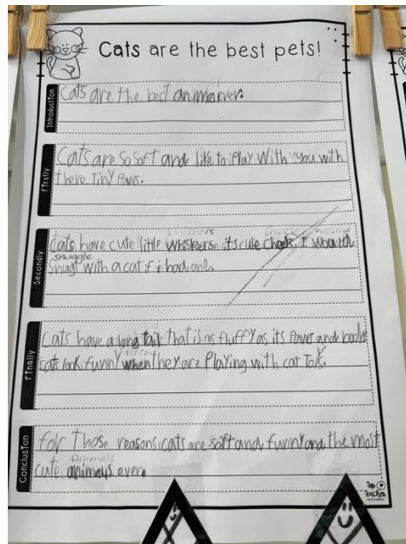 Cats are the best pets!
Introduction
Cats are the best animaever.
Firstly
Cats are so soft and like to play with you with
there tiny paws.
Secondly
whiskers
Cats have cute little whiskers on its cute cheek, I would
snuggle
snugl with a cat if i had one.
Finally
Cats have a long tail that is as fluffy as its paws and body
cats look funny when they are Playing with cat Toys.
Conclusion
for Those reasons cats are soft and funny and the most
animals
cute animays ever.
Top
Teacher